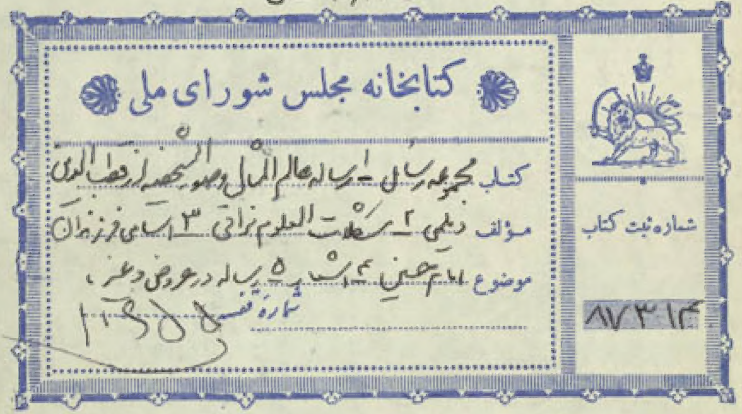 کتابخانه مجلس شورای ملی
کتاب مجموعه رسائل ۱- رساله عالم المثالی وصور الشخصیه از قطب الدین
مؤلف دیلمی ۲- مشکلات العلوم نراقی ۳- اسامی فرزندان
موضوع امام حسین ۴- اشعار ۵- رساله در عروض و غیره
شماره قفسه
شماره ثبت کتاب
۸۷۳۱۴